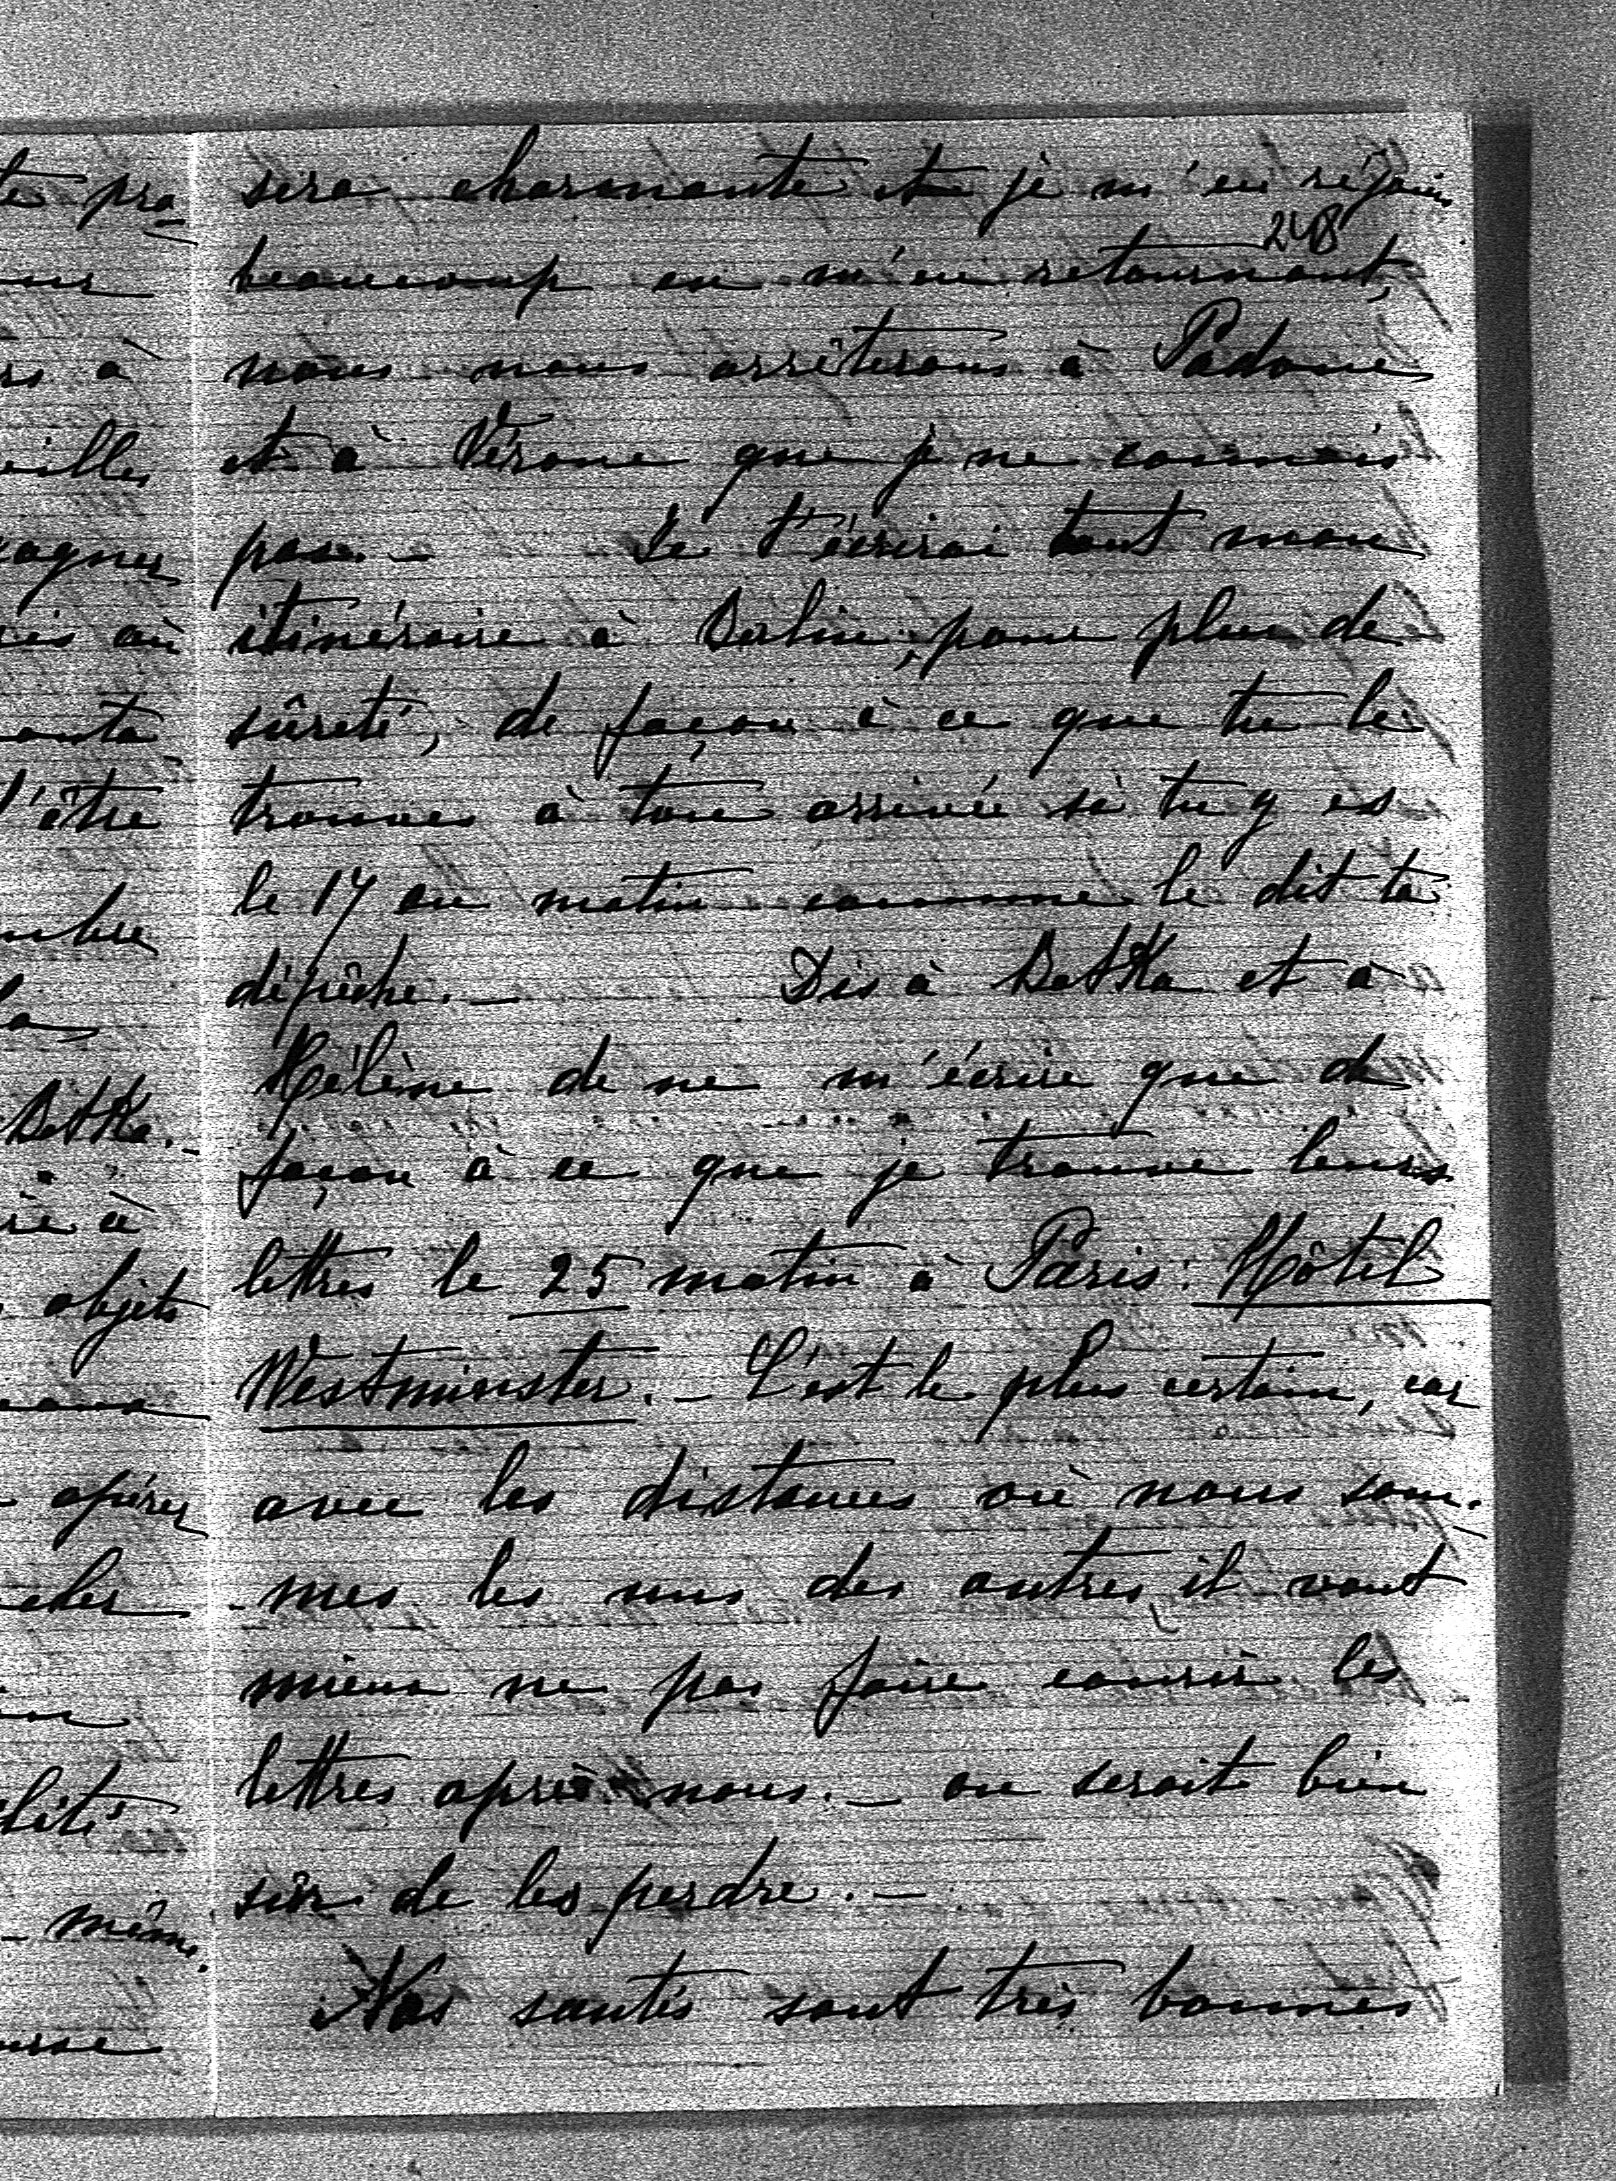 sera charmante et je m'en réjouis
248
beaucoup en m'en retournant,
nous nous arrêterons à Padoue
et à Vérone que je ne connais
pas. – Je t'écrirai tout mon
itinéraire à Berlin, pour plus de
sûreté, de façon à ce que tu le
trouves à ton arrivée si tu y es
le 17 au matin comme le dit ta
dépêche. – Dis à Betka et à
Hélène de ne m'écrire que de
façon à ce que je trouve leurs
lettres le 25 matin à Paris: Hôtel
Westminster. – C'est le plus certain, car
avec les distances où nous som-
-mes les uns des autres, il vaut
mieux ne pas faire courir les
lettres après nous. – on serait bien
sûr de les perdre. –
Nos santés sont très bonnes
te pra-
rs à
ville
ris où
l'être
Betka.
objets
opérer
même